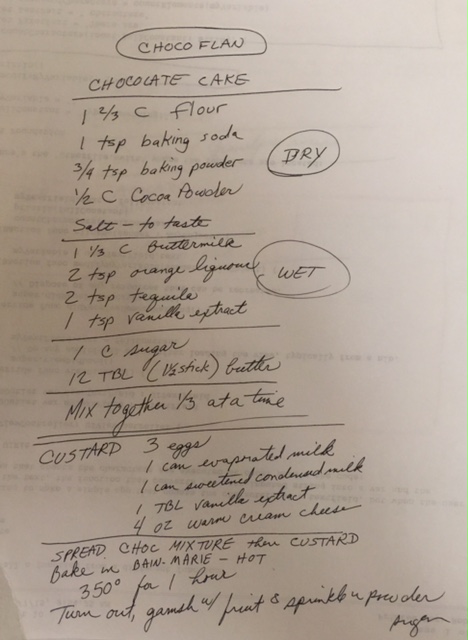 CHOCO FLAN
CHOCOLATE CAKE
1 2/3 C flour
1 tsp baking soda
3/4 tsp baking powder
DRY
1/2 C Cocoa Powder
Salt - to taste
1 1/3 C Buttermilk
2 tsp orange liqueur
WET
2 tsp tequila
1 tsp vanilla extract
1 C sugar
12 TBL (1 1/2 stick) butter
Mix together 1/3 at a time
CUSTARD 3 eggs
1 can evaporated milk
1 can sweetened condensed milk
1 TBL vanilla extract
4 oz warm cream cheese
SPREAD CHOC MIXTURE then CUSTARD
Bake in BAIN-MARIE - HOT
350° for 1 hour
Turn out, garnish w/ fruit & sprinkle w powder
sugar